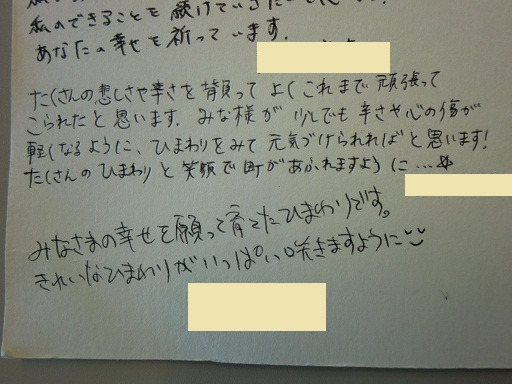 私のできることを続けていきたいと思います。
あなたの幸せを祈っています。
たくさんの悲しさや辛さを背負って よくこれまで頑張って
こられたと思います。みな様が 少しでも辛さや心の傷が
軽くなるように、ひまわりをみて 元気づけられればと思います!
たくさんの ひまわりと笑顔で町があふれますように…
みなさまの幸せを願って育てたひまわりです。
きれいなひまわりがいっぱい咲きますように